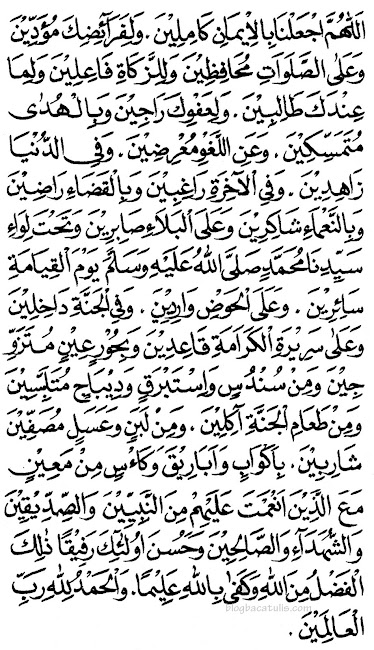 اَللّٰهُمَّ اجْعَلْنَا بِالْاِيْمَانِ كَامِلِيْنَ . وَلِفَرَآئِضِكَ مُؤَدِّيْنَ
وَعَلَى الصَّلَوَاتِ مُحَافِظِيْنَ وَلِلزَّكَاةِ فَاعِلِيْنَ وَلِمَا
عِنْدَكَ طَالِبِيْنَ . وَلِعَفْوِكَ رَاجِيْنَ وَبِالْهُدٰى
مُتَمَسِّكِيْنَ . وَعَنِ اللَّغْوِ مُعْرِضِيْنَ . وَفِى الدُّنْيَا
زَاهِدِيْنَ . وَفِى الْاٰخِرَةِ رَاغِبِيْنَ وَبِالْقَضَاءِ رَاضِيْنَ
وَبِالنَّعْمَاءِ شَاكِرِيْنَ وَعَلَى الْبَلَاءِ صَابِرِيْنَ وَتَحْتَ لِوَاءِ
سَيِّدِنَا مُحَمَّدٍ صَلَّى اللّٰهُ عَلَيْهِ وَسَلَّمَ يَوْمَ الْقِيَامَةِ
سَائِرِيْنَ . وَعَلَى الْحَوْضِ وَارِدِيْنَ . وَفِى الْجَنَّةِ دَاخِلِيْنَ
وَعَلٰى سَرِيْرَةِ الْكَرَامَةِ قَاعِدِيْنَ وَبِحُوْرٍ عِيْنٍ مُتَزَوِّ
جِيْنَ وَمِنْ سُنْدُسٍ وَاِسْتَبْرَقٍ وَدِيْبَاجٍ مُتَلَبِّسِيْنَ
وَمِنْ طَعَامِ الْجَنَّةِ اٰكِلِيْنَ . وَمِنْ لَبَنٍ وَعَسَلٍ مُصَفَّيْنِ
شَارِبِيْنَ . بِاَكْوَابٍ وَاَبَارِيْقَ وَكَاْسٍ مِنْ مَعِيْنٍ
مَعَ الَّذِيْنَ اَنْعَمْتَ عَلَيْهِمْ مِنَ النَّبِيِّيْنَ وَالصِّدِّيْقِيْنَ
وَالشُّهَدَآءِ وَالصَّالِحِيْنَ وَحَسُنَ اُولٰئِكَ رَفِيْقًا ذٰلِكَ
الْفَضْلُ مِنَ اللّٰهِ وَكَفٰى بِاللّٰهِ عَلِيْمًا . وَالْحَمْدُ لِلّٰهِ رَبِّ
الْعَالَمِيْنَ .
blogbacatulis.com